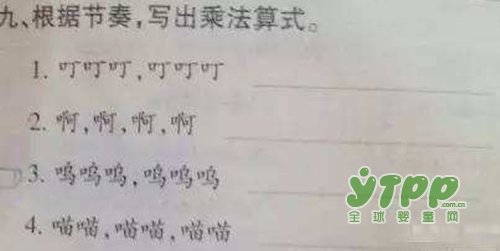 九、根据节奏,写出乘法算式。
1. 叮叮叮,叮叮叮
2. 啊,啊,啊,啊
3. 呜呜呜,呜呜呜
4. 喵喵,喵喵,喵喵
YTPP
.com.cn
全球婴童网